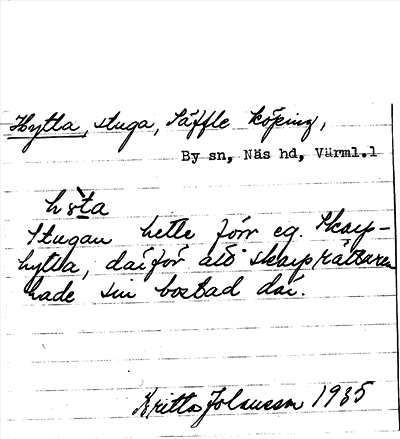 Hytta, stuga, Säffle köping,
By sn, Näs hd, Värml.l
hỳta
Stugan hette förr eg. Skarp-
hytta, därför att skarprättaren
hade sin bostad där.
Britta Johansson 1935